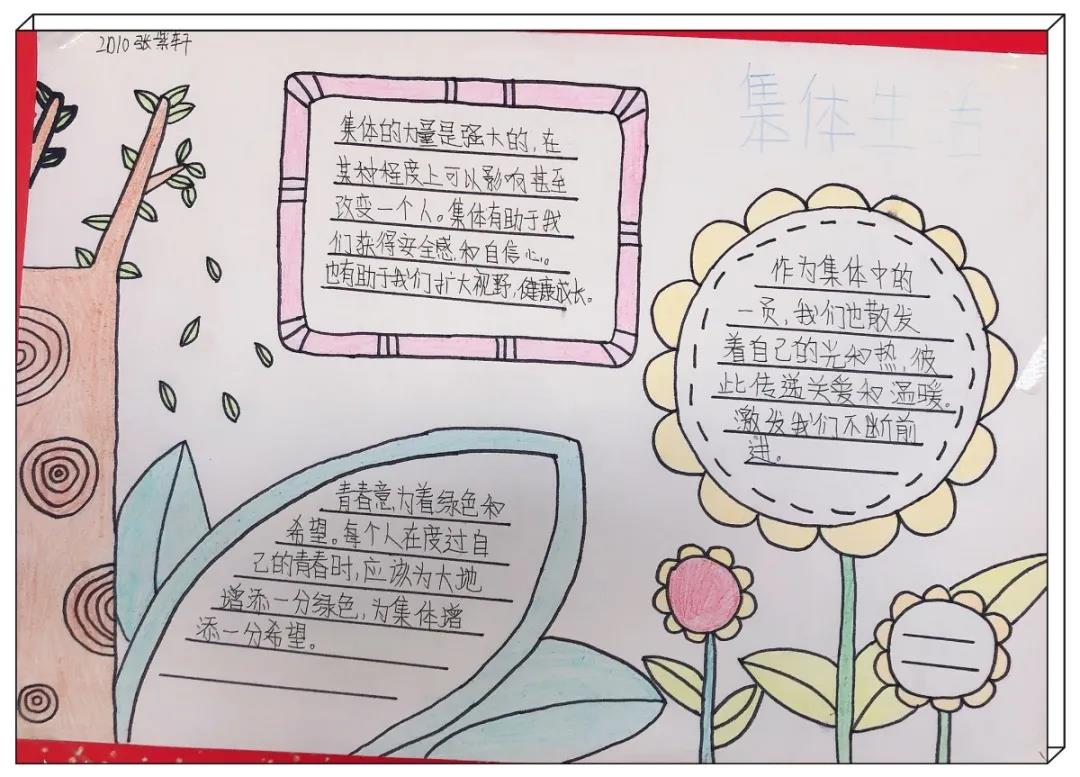 2010 张紫轩
集体生活
集体的力量是强大的,在
某种程度上可以影响甚至
改变一个人。集体有助于我
们获得安全感和自信心。
也有助于我们扩大视野,健康成长。
作为集体中的
一员,我们也散发
着自己的光和热,彼
此传递关爱和温暖。
激发我们不断前
进。
青春意为着绿色和
希望。每个人在度过自
己的青春时,应该为大地
增添一分绿色,为集体增
添一分希望。